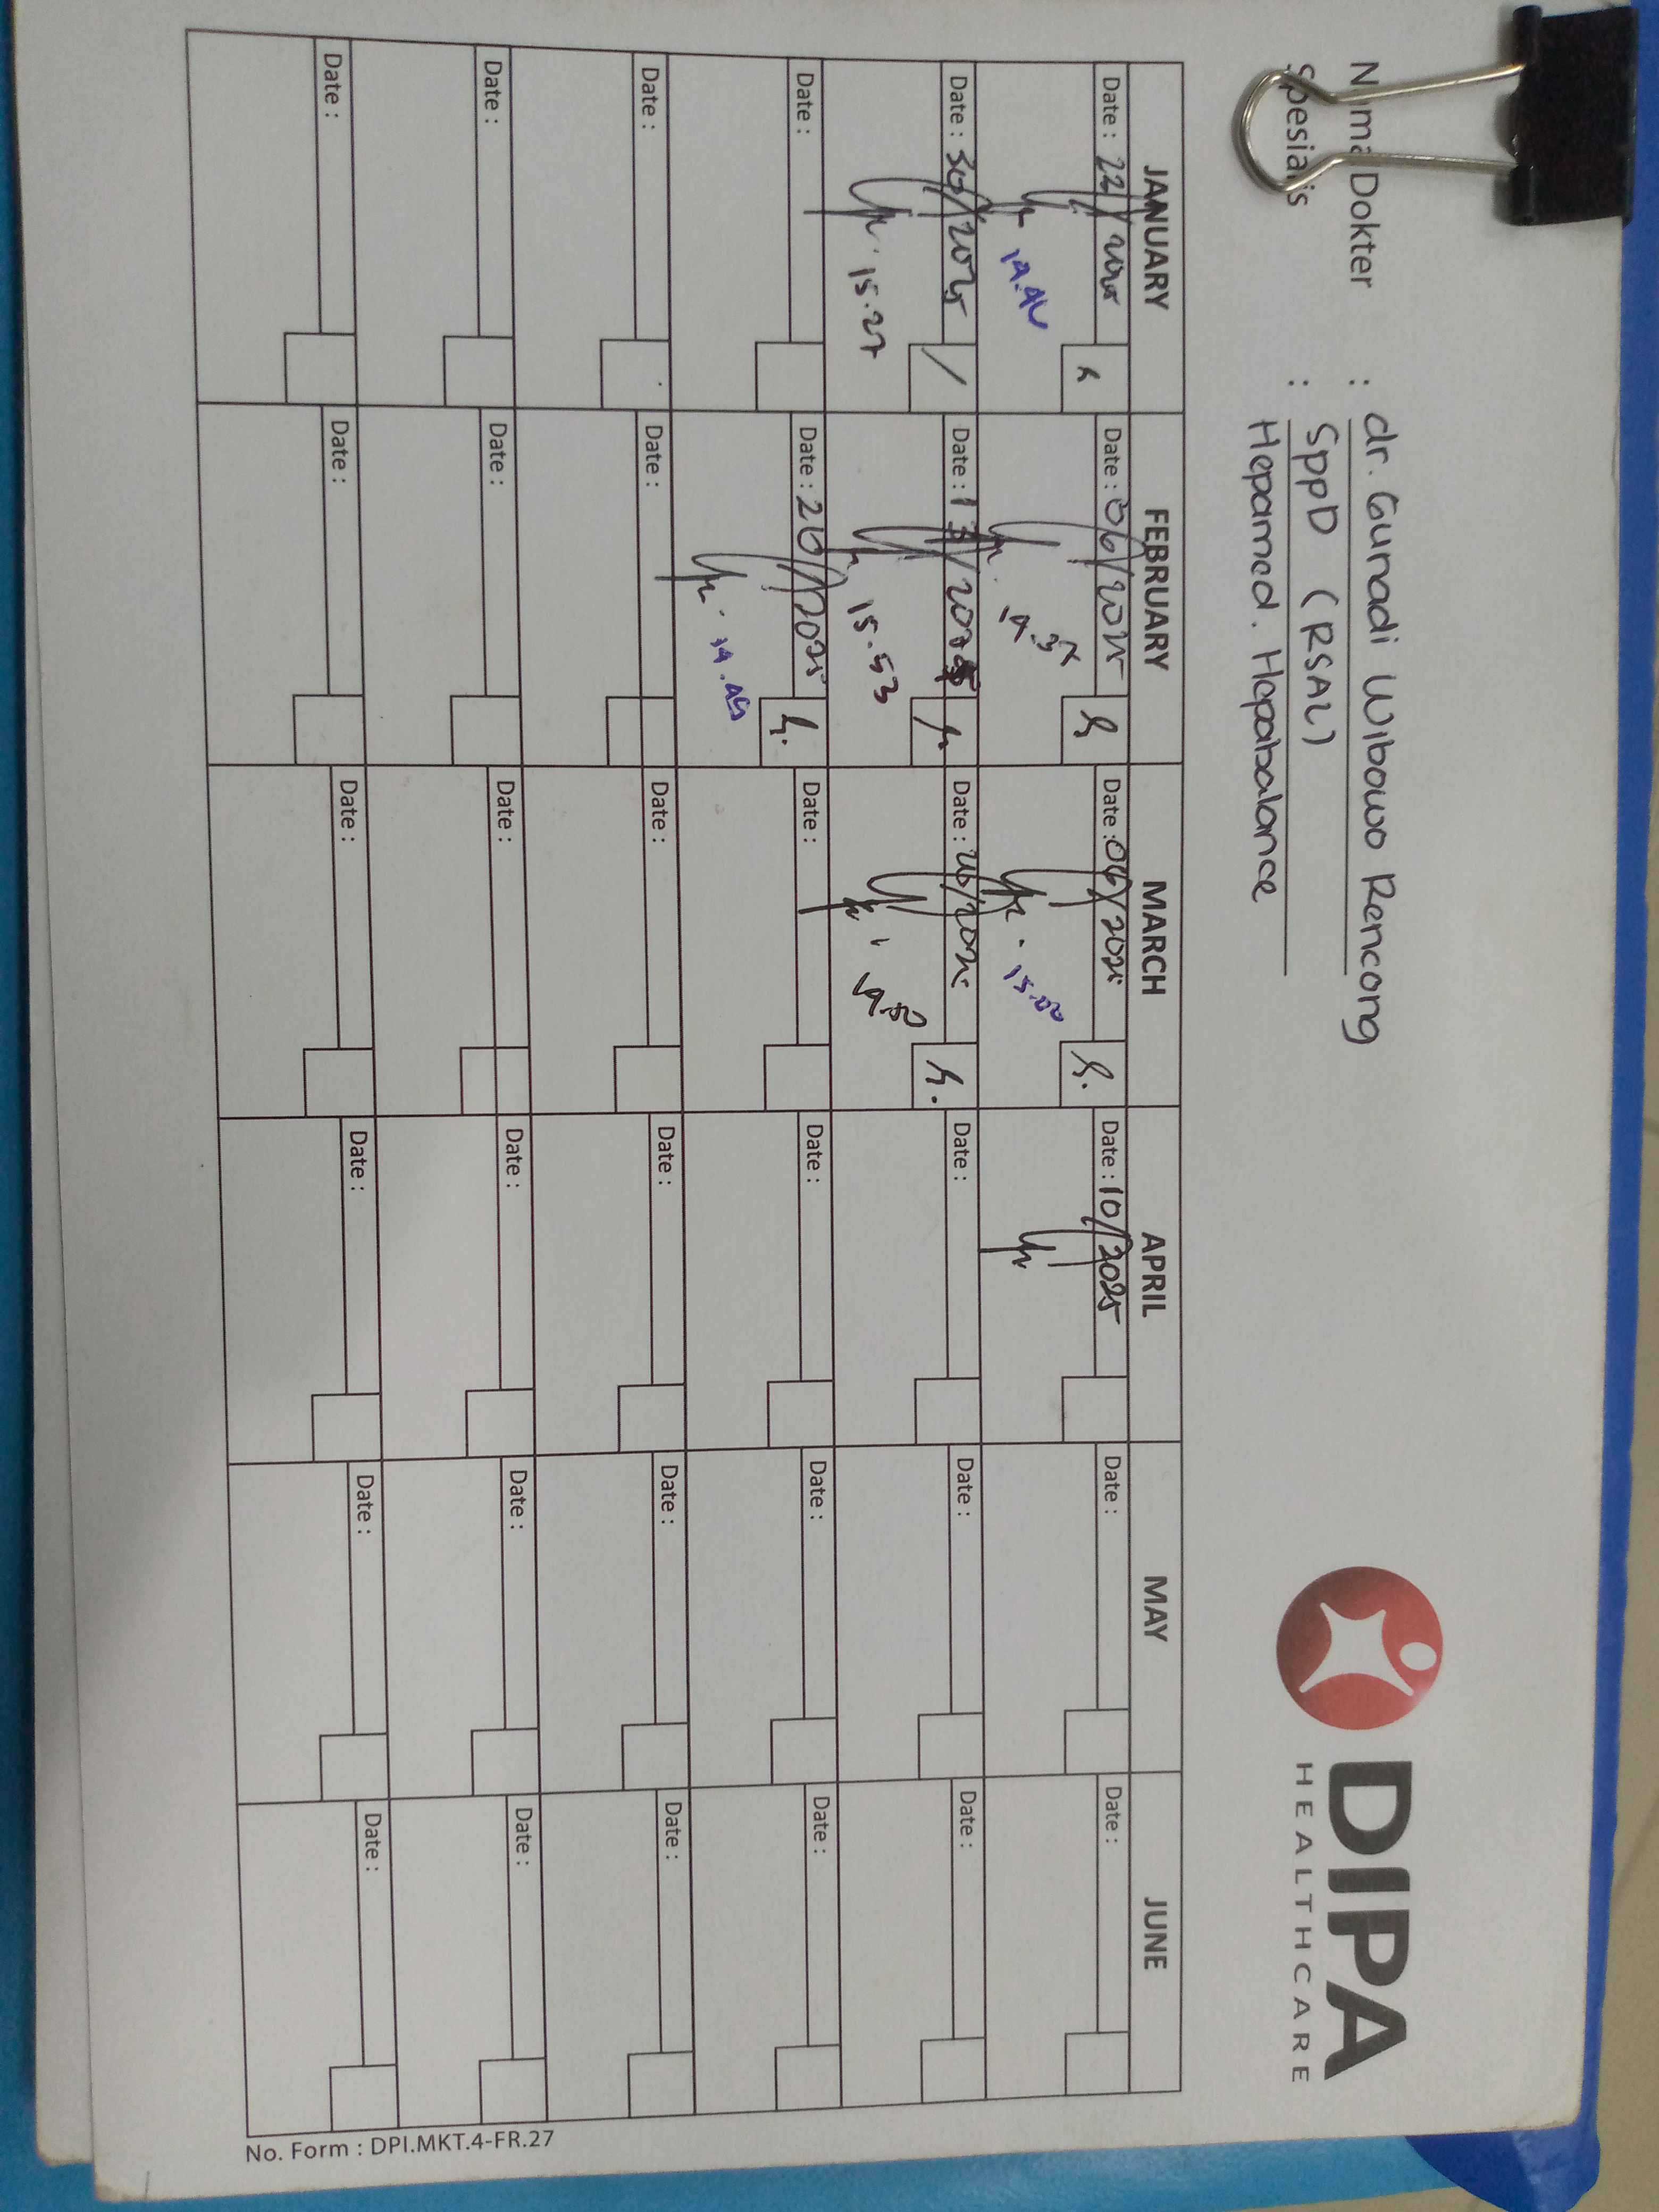 DIPA
HEALTHCARE
Nama Dokter : dr. Gunadi Wibowo Rencong
Spesialis : SppD (RSAL)
Hepamed. Hepabalance
JANUARY FEBRUARY MARCH APRIL MAY JUNE
Date : 22/2025 Date : 06/2025 Date : 06/2025 Date : 10/2025 Date : Date :
15.00
Date : 30/2025 Date : 13/2025 Date : 26/2025 Date : Date : Date :
15.27 15.53
Date : Date : 20/2025 Date : Date : Date : Date :
14.45
Date : Date : Date : Date : Date : Date :
Date : Date : Date : Date : Date : Date :
Date : Date : Date : Date : Date : Date :
No. Form : DPI.MKT.4-FR.27